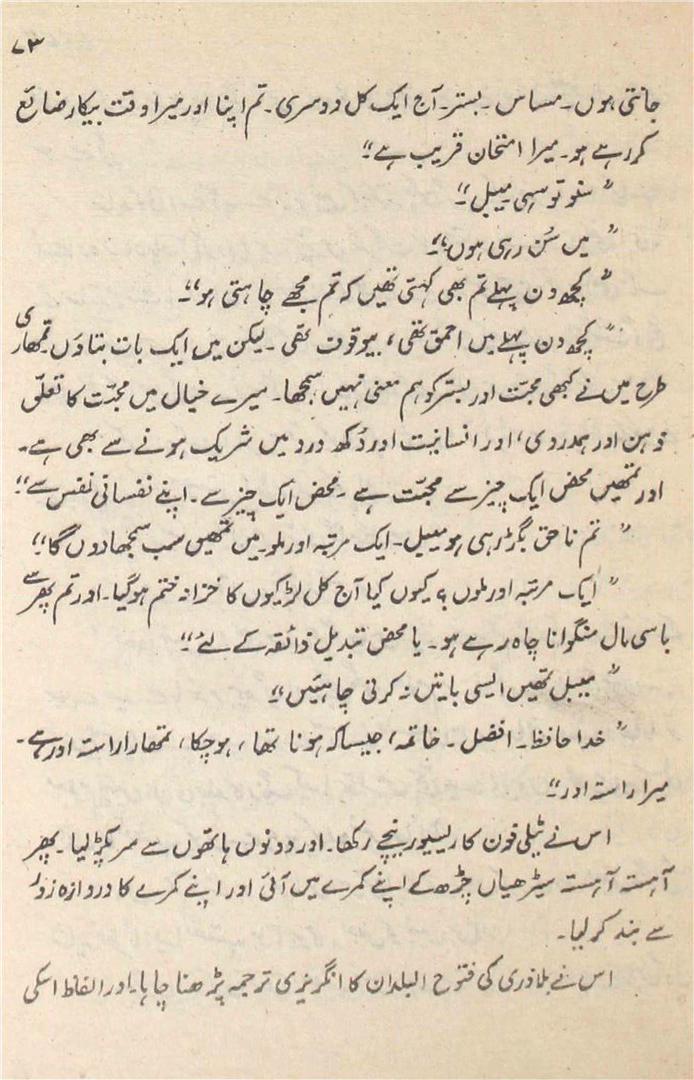 ۷۳
جانتی ہوں۔ مساس۔ بستر۔ آج ایک کل دوسری۔ تم اپنا اور میرا وقت بیکار ضائع
کر رہے ہو۔ میرا امتحان قریب ہے“
”سنو تو سہی میبل“
”میں سُن رہی ہوں“
”کچھ دن پہلے تم بھی کہتی تھیں کہ تم مجھے چاہتی ہو“
”کچھ دن پہلے میں احمق تھی، بیوقوف تھی۔ لیکن میں ایک بات بتاؤں۔ تمھاری
طرح میں نے کبھی محبّت اور بستر کو ہم معنی نہیں سمجھا۔ میرے خیال میں محبّت کا تعلّق
ذہن اور ہمدردی، اور انسانیت اور دُکھ درد میں شریک ہونے سے بھی ہے۔
اور تمھیں محض ایک چیز سے محبّت ہے۔ محض ایک چیز سے۔ اپنے نفسانی نفس سے“
”تم ناحق بگڑ رہی ہو میبل۔ ایک مرتبہ اور ملو۔ میں تمھیں سب سمجھا دوں گا“
”ایک مرتبہ اور ملوں؟ کیوں کیا آج کل لڑکیوں کا خزانہ ختم ہو گیا۔ اور تم پھر سے
باسی مال منگوانا چاہ رہے ہو۔ یا محض تبدیل ذائقہ کے لئے“
”میبل تمھیں ایسی باتیں نہ کرنی چاہئیں“
”خدا حافظ۔ افضل۔ خاتمہ، جیسا کہ ہونا تھا، ہو چکا، تمھارا راستہ اور ہے۔
میرا راستہ اور“
اس نے ٹیلی فون کا ریسیور نیچے رکھا۔ اور دونوں ہاتھوں سے سر پکڑ لیا۔ پھر
آہستہ آہستہ سیڑھیاں چڑھ کے اپنے کمرے میں آئی اور اپنے کمرے کا دروازہ زور
سے بند کر لیا۔
اس نے بلاذری کی فتوح البلدان کا انگریزی ترجمہ پڑھنا چاہا۔ اور الفاظ اسکی